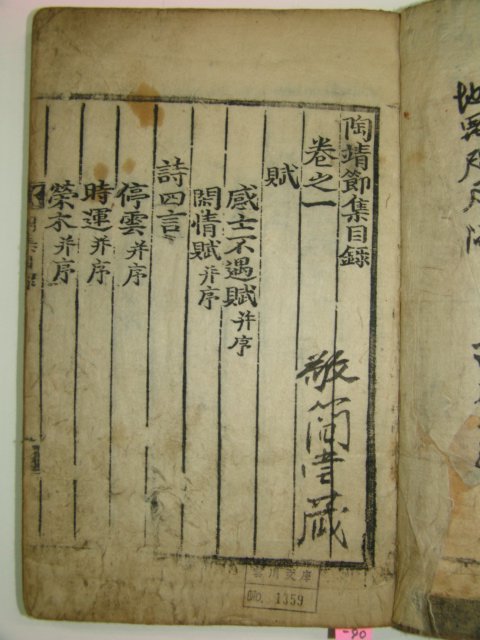 陶靖節集目錄
卷之一
賦
感士不遇賦 幷序
閑情賦 幷序
詩四言
停雲 幷序
時運 幷序
榮木 幷序
藏
文庫
NO. 1359
-90